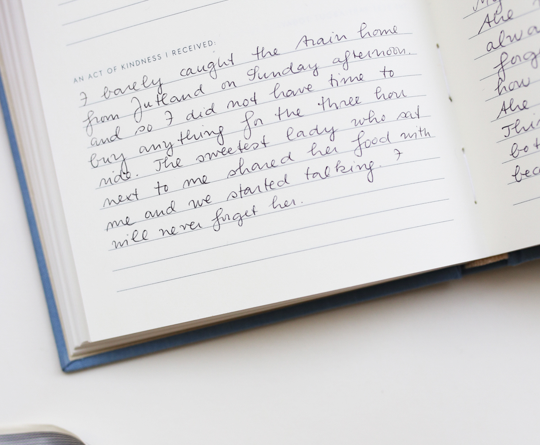 AN ACT OF KINDNESS I RECEIVED:
I barely caught the train home
from Jutland on Sunday afternoon.
and so I did not have time to
buy anything for the three hou
ride. The sweetest lady who sat
next to me shared her food with
me and we started talking. I
will never forget her.
My
She
alwa
forg
how
the
This
bot
bec